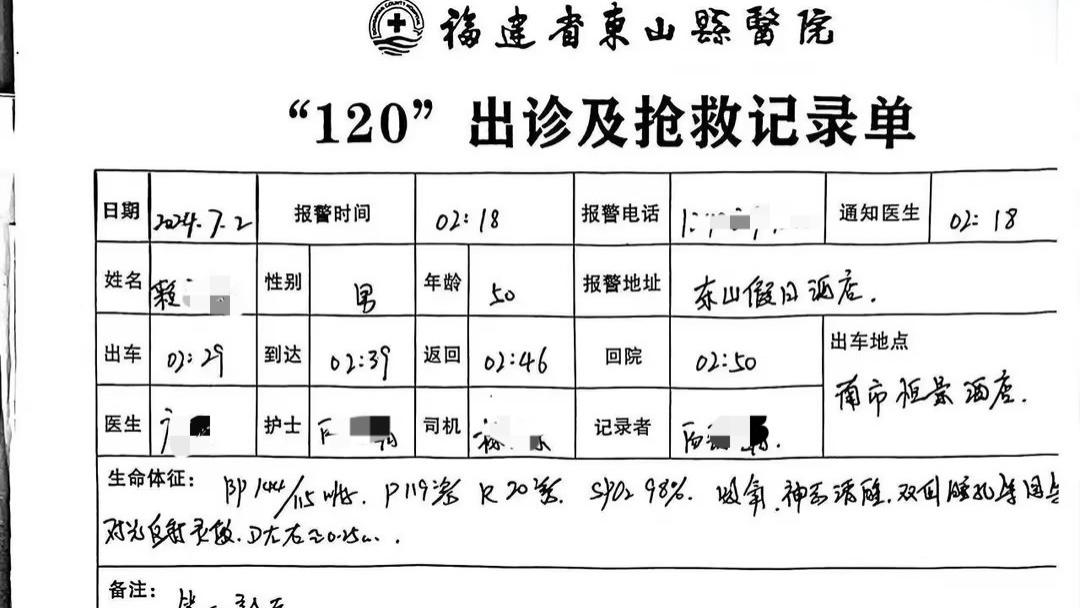 福建省東山縣醫院
“120”出诊及抢救记录单
日期 2024.7.2 报警时间 02:18 报警电话 通知医生 02:18
姓名 性别 男 年龄 50 报警地址 东山假日酒店.
出车 02:29 到达 02:39 返回 02:46 回院 02:50 出车地点
南市恒景酒店.
医生 护士 司机 记录者
生命体征: BP 144/115 mmHg. P 119次/分 R 20次/分. SPO2 98%. 吸氧. 神志清醒. 双侧瞳孔等圆
对光反射灵敏. D左右≈0.25cm.
备注: